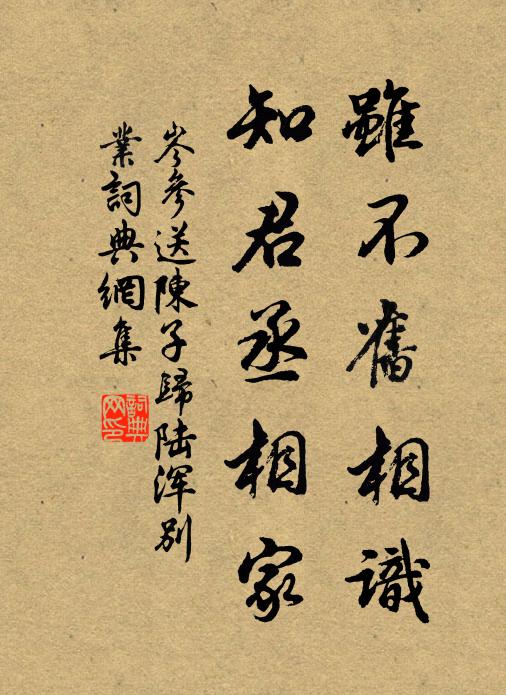 雖不舊相識
知君丞相家
岑參送陳子歸陆浑別
業詞典網集
詞典
网印